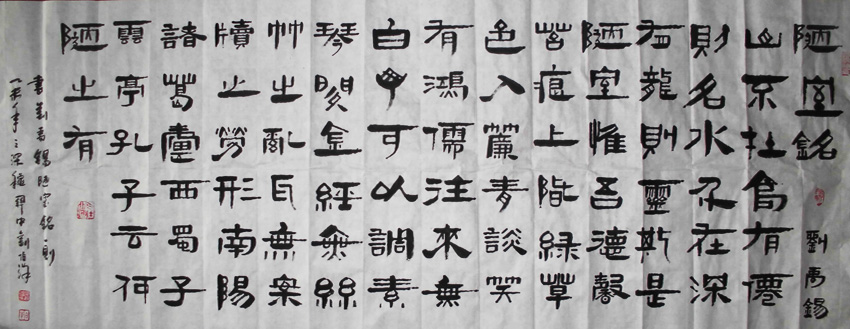 陋室銘 劉禹錫
山不在高有僊
則名水不在深
有龍則靈斯是
陋室惟吾德馨
苔痕上階緑草
色入簾青談笑
有鴻儒往來無
白丁可以調素
琴閱金經無絲
竹之亂耳無案
牘之勞形南陽
諸葛廬西蜀子
雲亭孔子云何
陋之有
書劉禹錫陋室銘一則